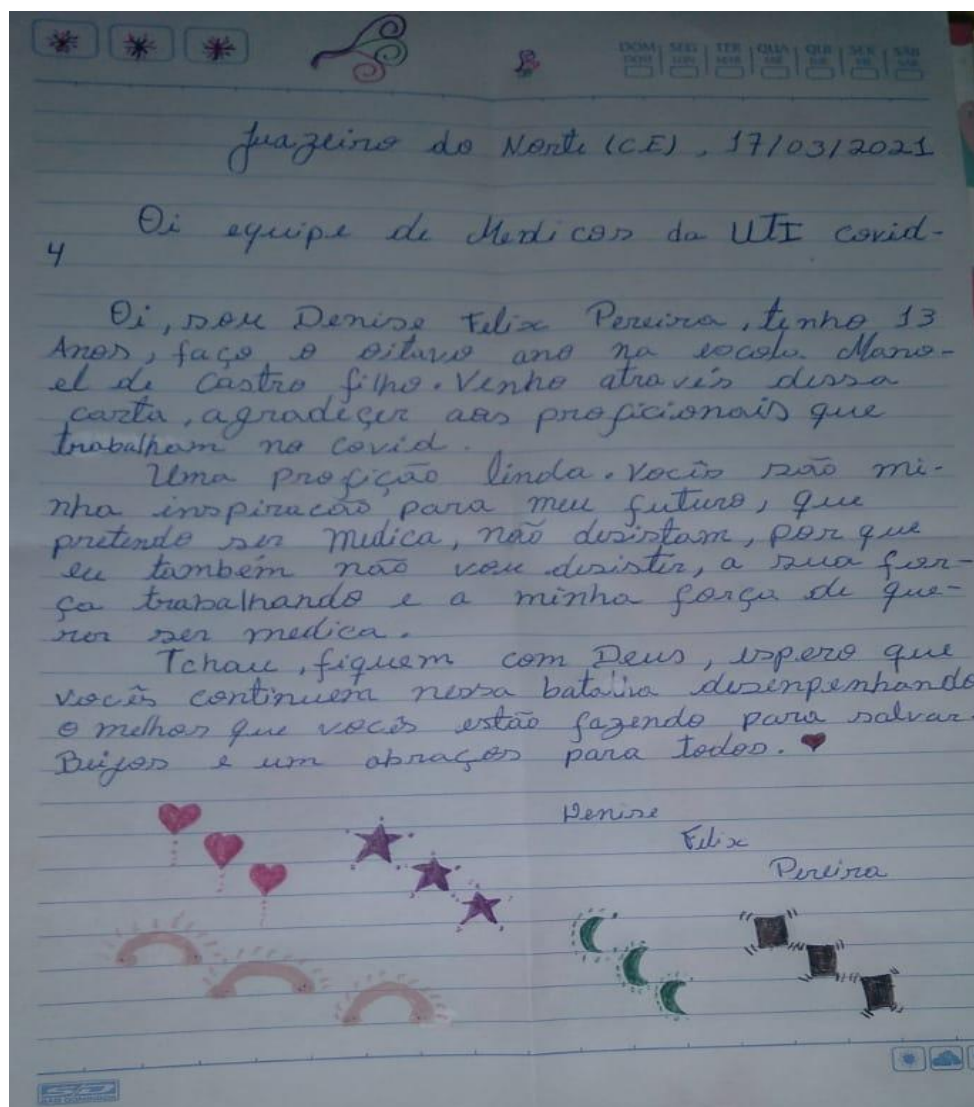 DOM SEG TER QUA QUI SEX SAB
Juazeiro do Norte (CE), 17/03/2021
Oi equipe de Medicos da UTI covid-
4
Oi, sou Denise Felix Pereira, tenho 13
Anos, faço o oitavo ano na escola Mano-
el de Castro filho. Venho através dessa
carta, agradeçer aos proficionais que
trabalham no covid.
Uma profição linda. Vocês são mi-
nha inspiracão para meu futuro, que
pretendo ser medica, não desistam, por que
eu também não vou desistir, a sua for-
ça trabalhando e a minha força de que-
rer ser medica.
Tchau, fiquem com Deus, espero que
vocês continuem nessa batalha desenpenhando
o melhor que vocês estão fazendo para salvar.
Beijos e um abraços para todos.
Denise
Felix
Pereira